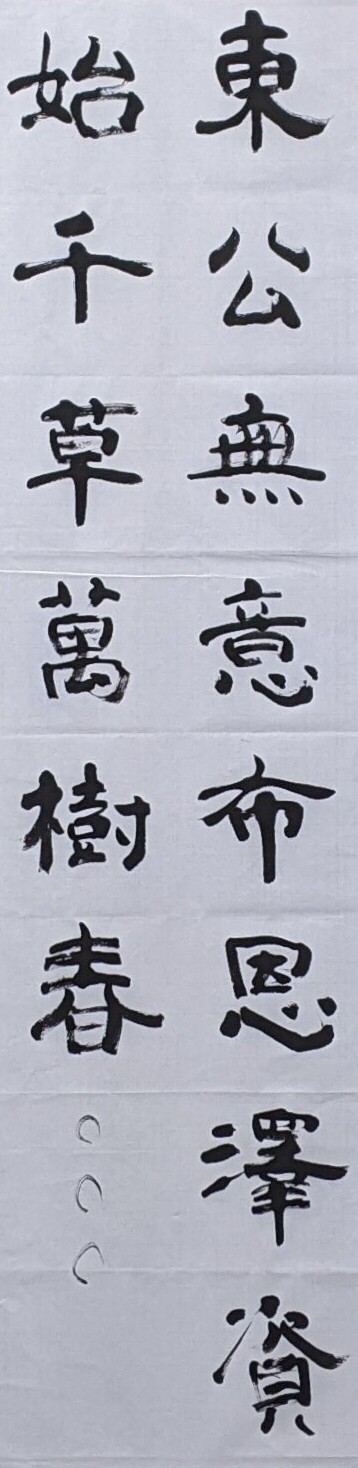 東公無意布恩澤資
始千草萬樹春○○○